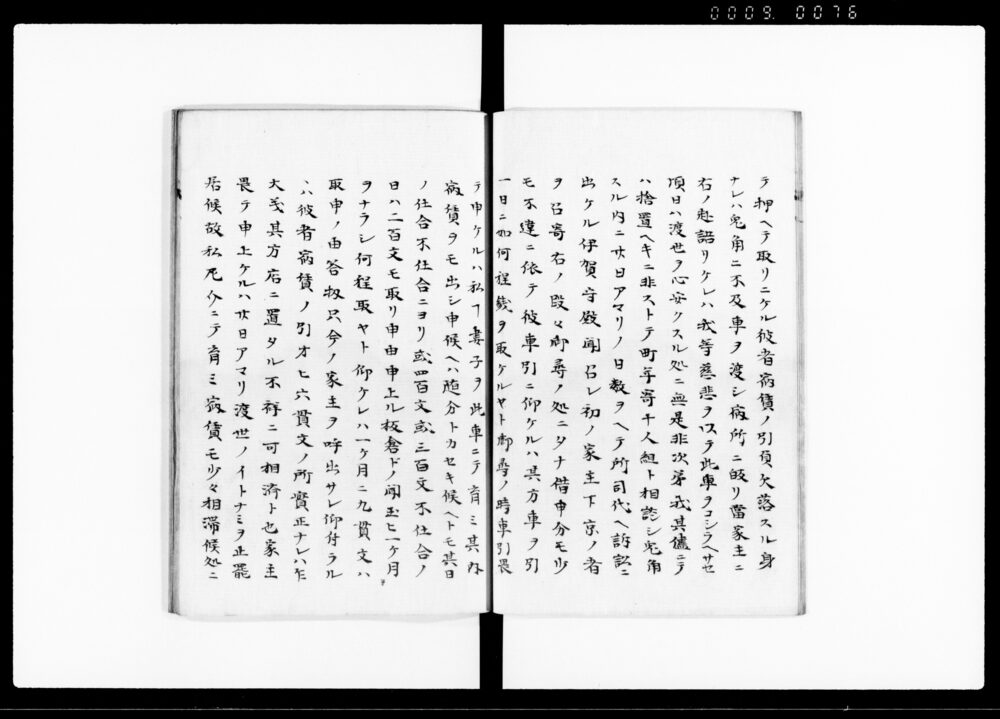 0009. 0076
テ押ヘテ取リニケル彼者病債ノ引頂欠落スル身
ナレハ兎角ニ不及車ヲ渡シ宿所ニ皈リ當家主ニ
右ノ趣語リケレハ我等慈悲ヲ以テ此車ヲコシラヘサセ
項日ハ渡世ヲ心安クスル処ニ無是非次第我其儘ニテ
ハ捨置ヘキニ非ストテ町年寄十人組ト相談シ兎角
スル内ニ廿日アマリノ日数ヲヘテ所司代ヘ訴訟ニ
出ケル伊賀守殿聞召レ初ノ家主下京ノ者
ヲ召寄右ノ段々御尋ノ処ニタナ借申分モ少
モ不違ニ依テ彼車引ニ仰ケルハ其方車ヲ引
一日ニ如何程幾ヲ取ケルヤト御尋ノ時車引畏
テ申ケルハ私丁妻子ヲ此車ニテ育ミ其外
宿債ヲモ出シ申候ヘハ随分トカセキ候ヘトモ其日
ノ仕合不仕合ニヨリ或四百文或三百文不仕合ノ
日ハ二百文モ取リ申由申上ル板倉ドノ聞玉ヒ一ケ月
ヲナラシ何程取ヤト仰ケレハ一ケ月ニ九貫文ハ
取申ノ由答扨只今ノ家主ヲ呼出サレ仰付ラル
ヽハ彼者宿債ノ引オヒ六貫文ノ所實正ナレハ
大義其方店ニ置タル不祥ニ可相済ト也家主
畏テ申上ケルハ廿日アマリ渡世ノイトナミヲ正罷
居候故私介ニテ育ミ宿債モ少々相滞候処ニ